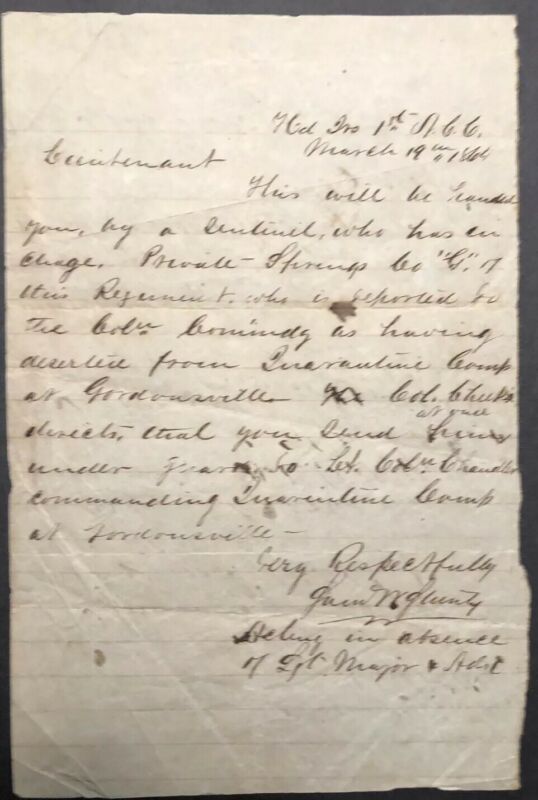 Hd Qrs 1st N.C.C.
March 19th 1864
Lieutenant
This will be handed
you, by a Sentinel, who has in
chage, Private Springs Co "G" of
this Regiment, who is reported to
the Coln Comindg as having
deserted from Quarantine Camp
at Gordonsville Col. Cheek
directs, that you send him
at once
under guard to Lt. Coln Chandler
commanding Quarintine Camp
at Gordonsville –
Very Respectfully
Acting in absence
of Sgt Major & Adjt